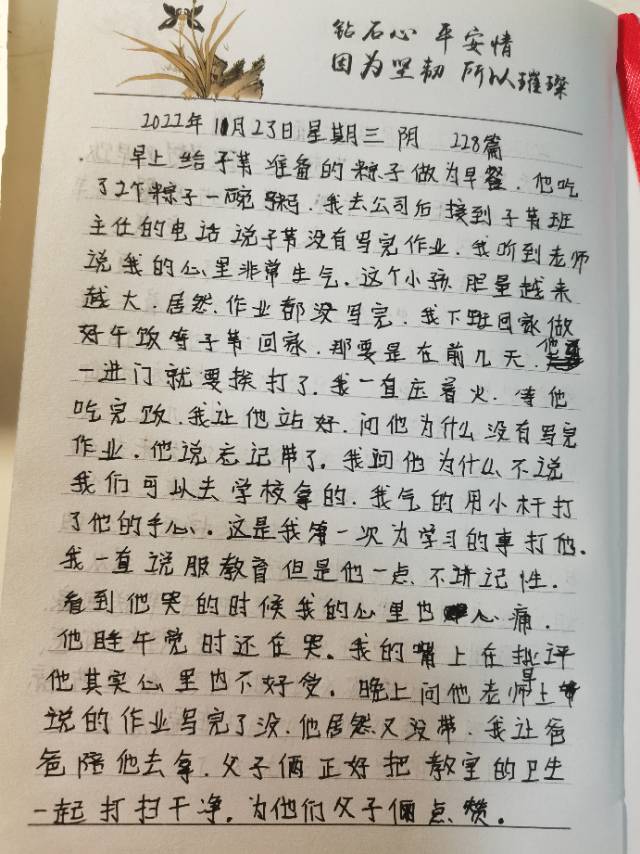 钻石心 平安情
因为坚韧 所以璀璨
2022年 11月23日 星期三 阴 228篇
早上给子芾准备的粽子做为早餐.他吃
了2个粽子一碗粥.我去公司后接到子芾班
主任的电话说子芾没有写完作业.我听到老师
说我的心里非常生气.这个小孩胆量越来
越大.居然.作业都没写完.我下班回家做
好午饭等子芾回家.那要是在前几天.他
一进门就要挨打了.我一直压着火.等他
吃完饭.我让他站好.问他为什么没有写完
作业.他说忘记带了.我问他为什么不说
我们可以去学校拿的.我气的用小杆打
了他的手心。这是我第一次为学习的事打他.
我一直说服教育但是他一点不讲记性.
看到他哭的时候我的心里也心痛.
他睡午觉时还在哭。我的嘴上在批评
他其实心里也不好受。晚上问他老师早上
说的作业写完了没.他居然又没带.我让爸
爸陪他去拿.父子俩正好把教室的卫生
一起打扫干净。为他们父子俩点赞。